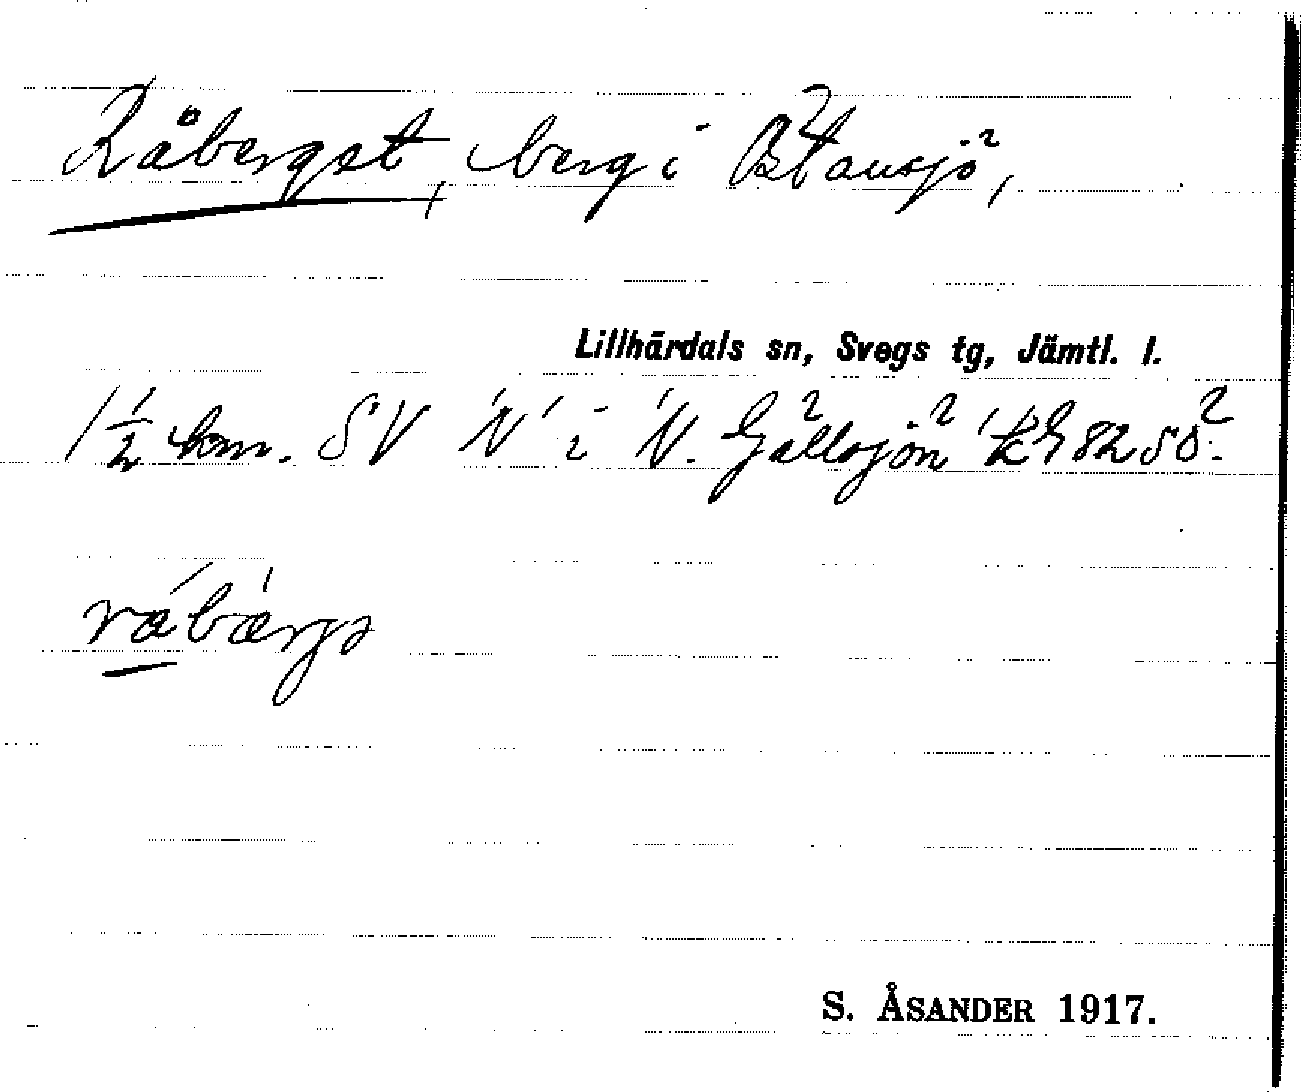 Råberget, berg i Bräansjö,
Lillhärdals sn, Svegs tg, Jämtl. l.
1 1/2 km. SV "N" i N. Gällsjön
råbärge
S. ÅSANDER 1917.